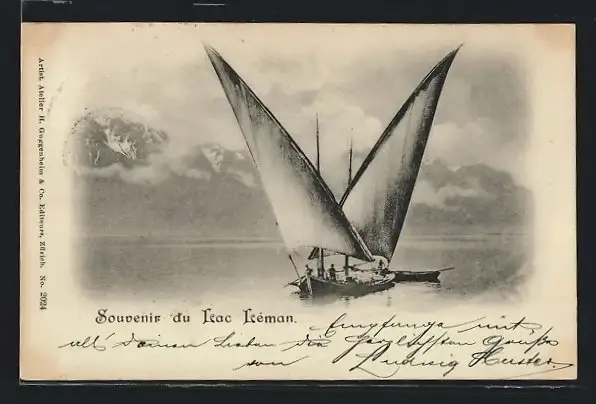 Artist. Atelier H. Guggenheim & Co. Editeurs, Zürich. No. 2924
Souvenir du Lac Léman.
Empfange mit
all' deinen Lieben die herzlichsten Grüsse
von Ludwig